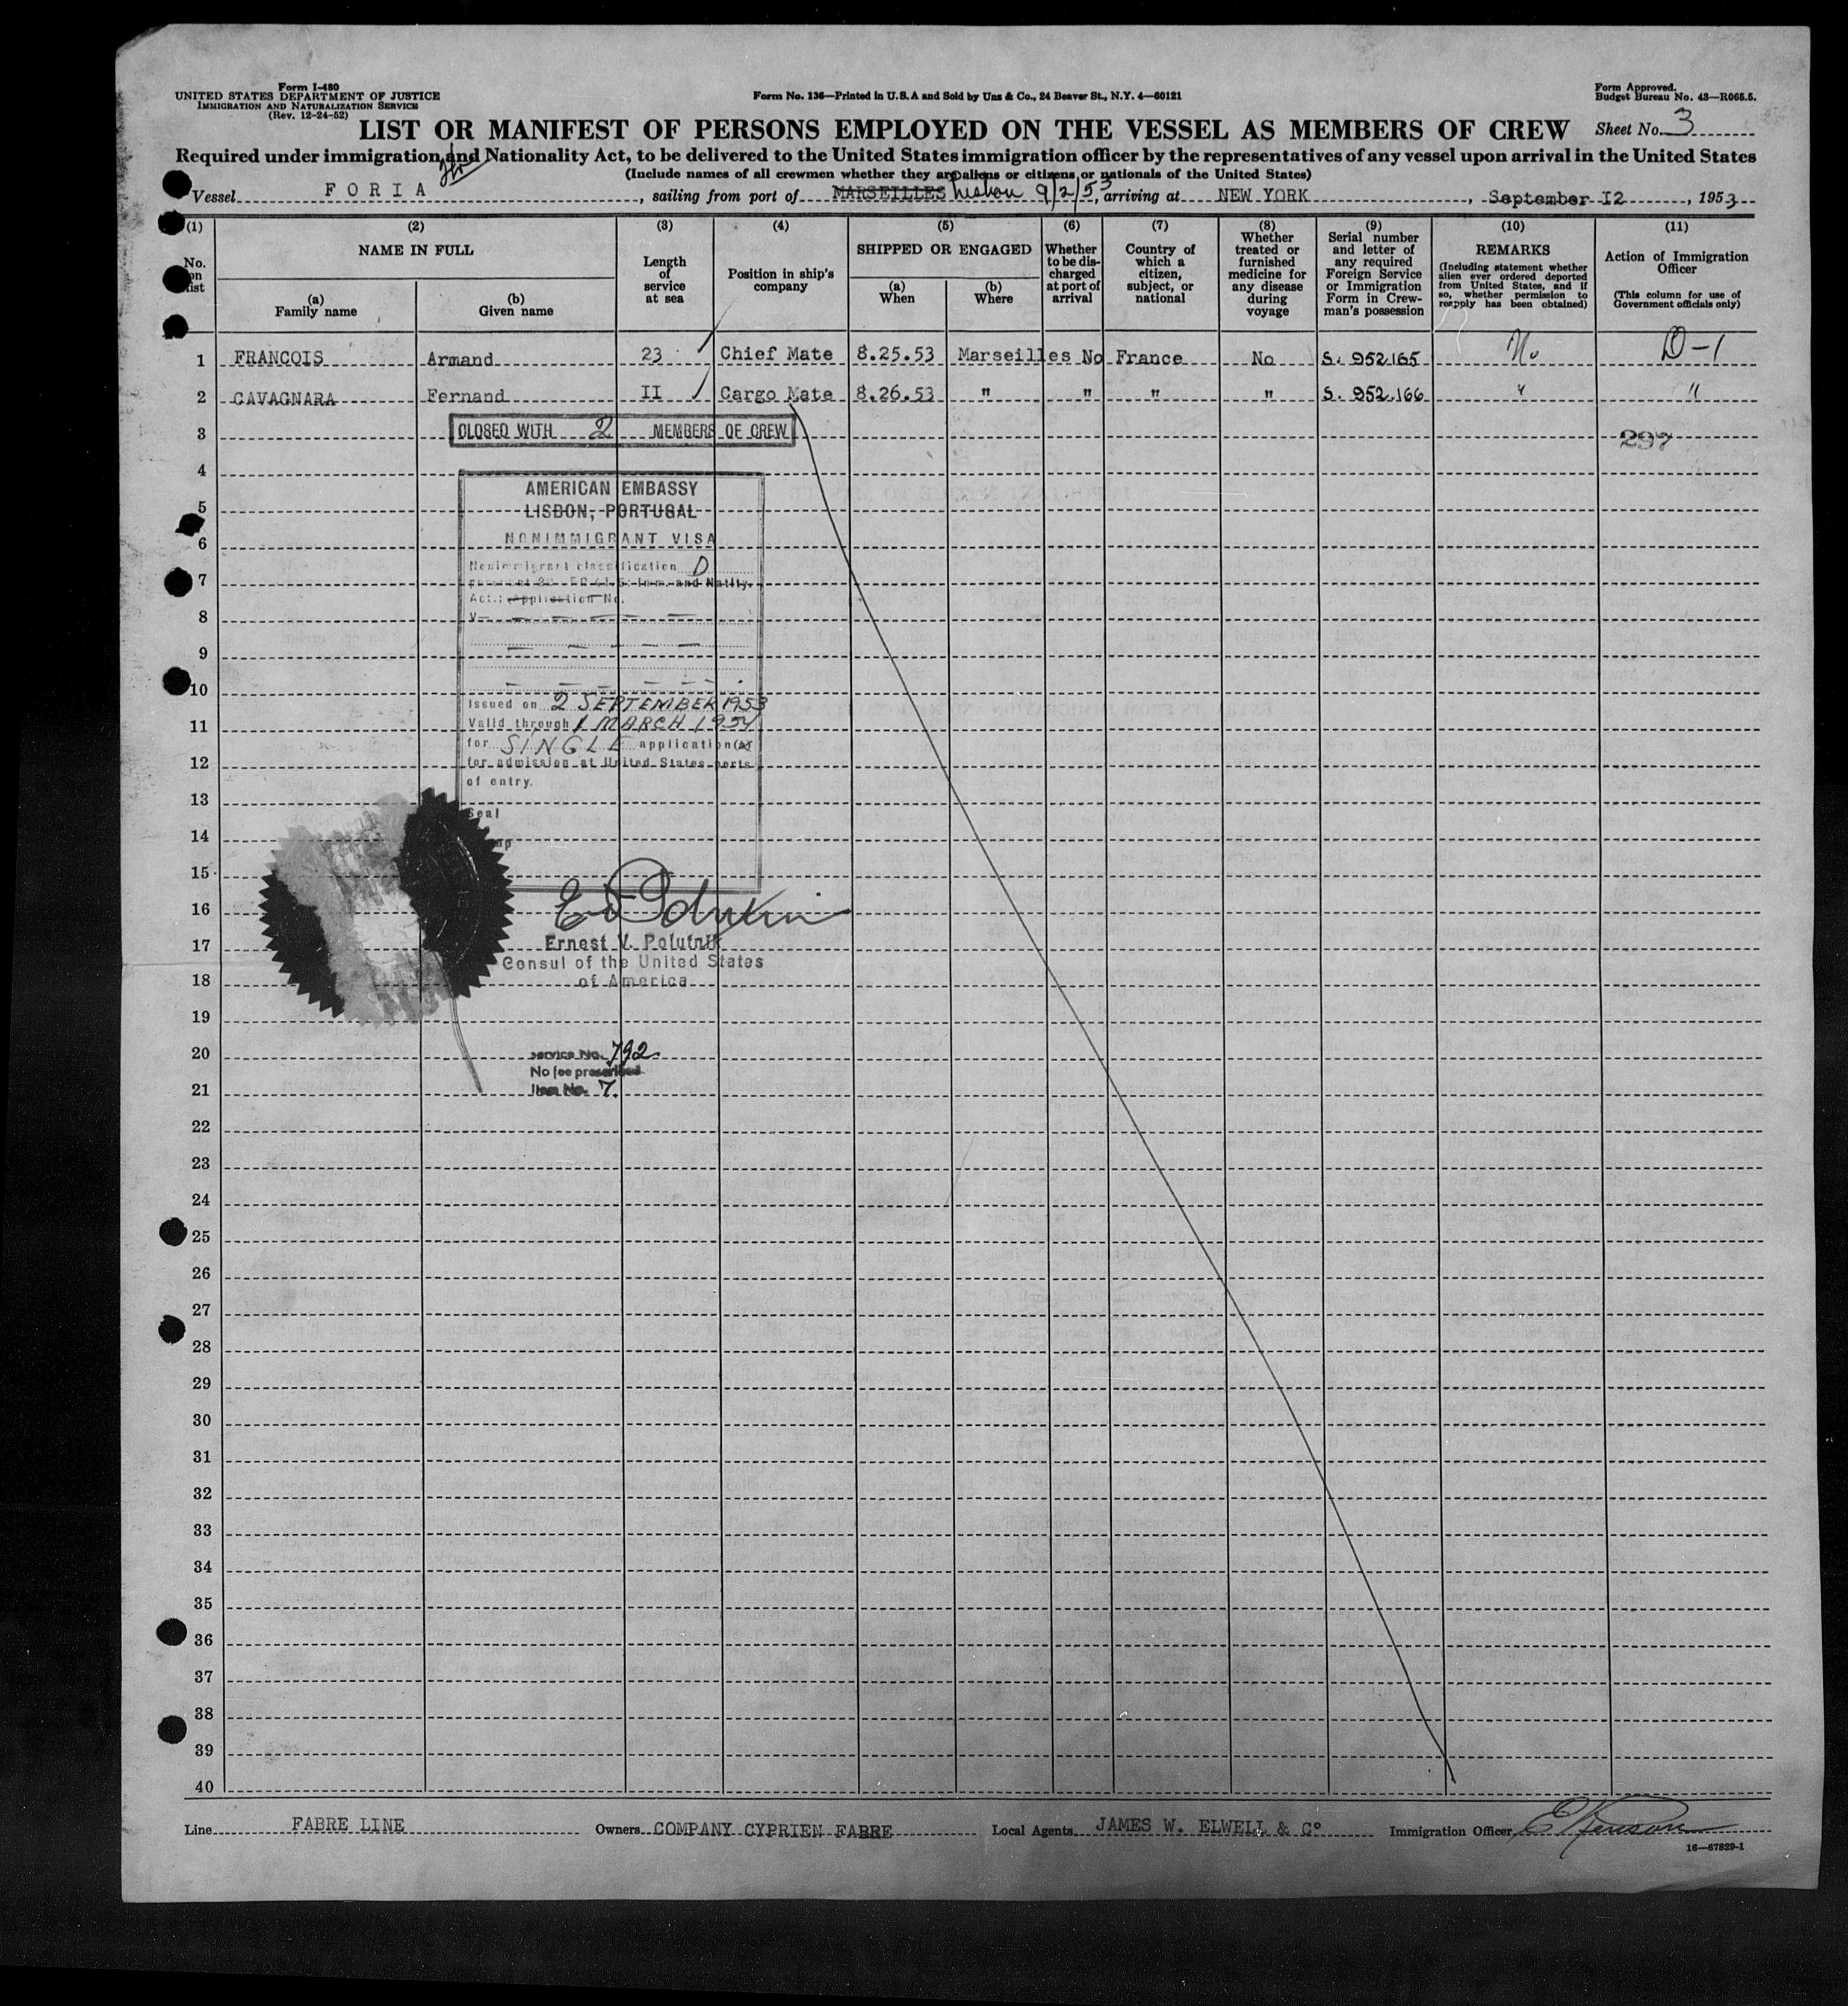 Form I-480
UNITED STATES DEPARTMENT OF JUSTICE
IMMIGRATION AND NATURALIZATION SERVICE
(Rev. 12-24-52)
Form No. 136—Printed in U.S.A and Sold by Unz & Co., 24 Beaver St., N.Y. 4—60121
Form Approved.
Budget Bureau No. 43—R065.5.
LIST OR MANIFEST OF PERSONS EMPLOYED ON THE VESSEL AS MEMBERS OF CREW
Sheet No. 3
Required under immigration and Nationality Act, to be delivered to the United States immigration officer by the representatives of any vessel upon arrival in the United States
(Include names of all crewmen whether they are aliens or citizens or nationals of the United States)
Vessel FORIA, sailing from port of MARSEILLES Lisbon 9/2/53, arriving at NEW YORK, September I2, 1953
(1) (2) (3) (4) (5) (6) (7) (8) (9) (10) (11)
No. on list
NAME IN FULL
(a) Family name
(b) Given name
Length of service at sea
Position in ship's company
SHIPPED OR ENGAGED
(a) When
(b) Where
Whether to be discharged at port of arrival
Country of which a citizen, subject, or national
Whether treated or furnished medicine for any disease during voyage
Serial number and letter of any required Foreign Service or Immigration Form in Crewman's possession
REMARKS
(Including statement whether alien ever ordered deported from United States, and if so, whether permission to reapply has been obtained)
Action of Immigration Officer
(This column for use of Government officials only)
1 FRANCOIS Armand 23 Chief Mate 8.25.53 Marseilles No France No S. 952.165 No D-1
2 CAVAGNARA Fernand II Cargo Mate 8.26.53 " " " " S. 952.166 " "
3 CLOSED WITH 2 MEMBERS OF CREW 297
4
AMERICAN EMBASSY
5 LISBON, PORTUGAL
6 NONIMMIGRANT VISA
Nonimmigrant classification D
7
Act.: Application No.
8 V—
9
10
Issued on 2 SEPTEMBER 1953
11 Valid through 1 MARCH 1954
for SINGLE application(s)
12 for admission at United States ports
of entry.
13
Seal
14
15
16
17 Ernest V. Polutnik
Consul of the United States
18 of America
19
20 Service No. 792
No fee prescribed
21 Item No. 7
22
23
24
25
26
27
28
29
30
31
32
33
34
35
36
37
38
39
40
Line FABRE LINE Owners COMPANY CYPRIEN FABRE Local Agents JAMES W. ELWELL & Co Immigration Officer
16—67829-1